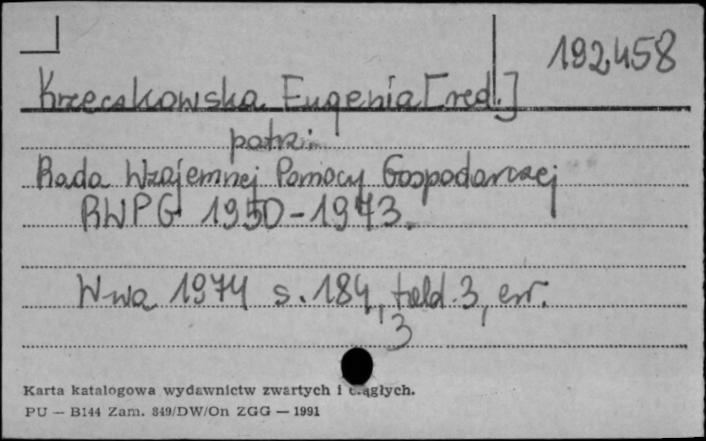 192458
Krzeczkowska Eugenia [red.]
patrz:
Rada Wzajemnej Pomocy Gospodarczej
RWPG 1950-1973.
W-wa 1974 s. 184, tabl. 3, err.
3
Karta katalogowa wydawnictw zwartych i ciągłych.
PU — B144 Zam. 849/DW/On ZGG — 1991